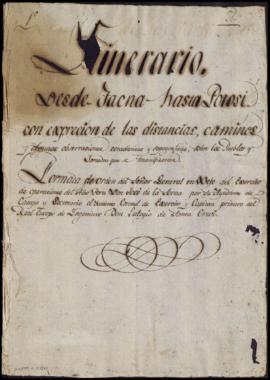 Itinerario,
Desde Tacna hasta Potosi
con exprecion de las distancias, caminos
y algunas observaciones economicas y topograficas, sobre los Pueblos y
Jornadas que se transitaron.
Formada de orden del Señor General en Xefe del Exercito
de operaciones del Alto Peru Don José de la Serna por su Ayudante de
Campo y Secretario el Teniente Coronel de Exercito y Capitan primero del
Real Cuerpo de Ingenieros Don Eulogio de Santa Cruz.